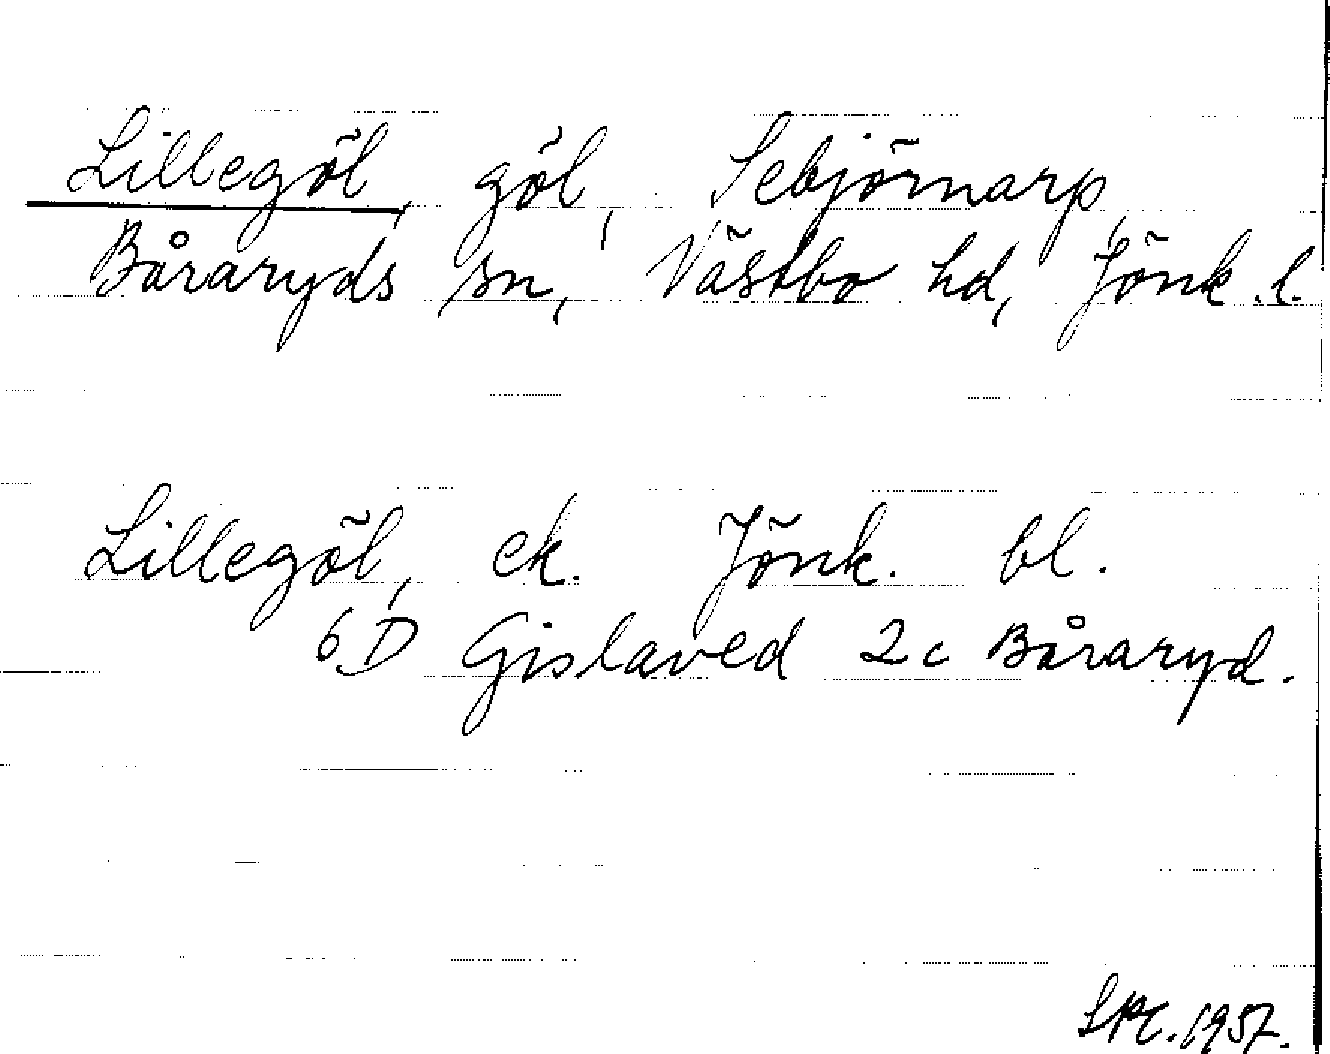 Lillegöl, göl, Sebjörnarp,
Båraryds sn, Västbo hd, Jönk.l.
Lillegöl, ek. Jönk. bl.
6D Gislaved 2c Båraryd.
1957.